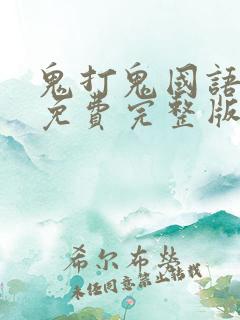 鬼打鬼國語
免費完整版
希尔布莹
未经同意禁止转载